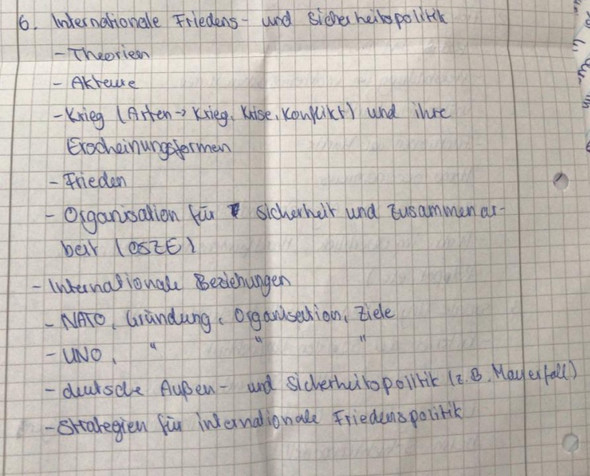 6. Internationale Friedens- und Sicherheitspolitik
- Theorien
- Akteure
- Krieg (Arten -> Krieg, Krise, Konflikt) und ihre
Erscheinungsformen
- Frieden
- Organisation für Sicherheit und Zusammenar-
beit (OSZE)
- Internationale Beziehungen
- NATO, Gründung, Organisation, Ziele
- UNO, " " "
- deutsche Außen- und Sicherheitspolitik (z.B. Mauerfall)
- Strategien für internationale Friedenspolitik